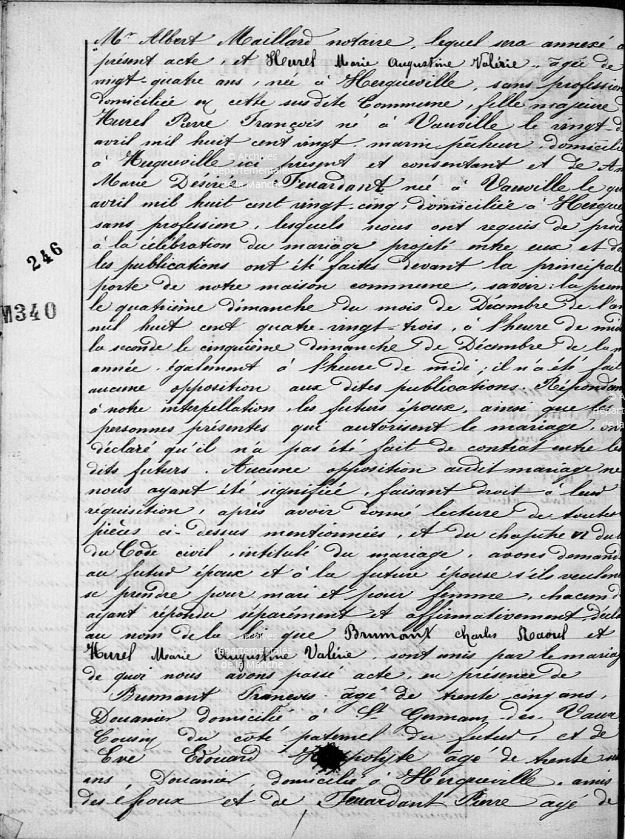 Mr Albert Maillard notaire, lequel sera annexé a
présent acte, et Hurel Marie Augustine Valérie. âgée de
vingt-quatre ans, née à Herqueville, sans profession
domiciliée en cette susdite Commune, fille majeure d
Hurel Pierre François né à Vauville le vingt-d
avril mil huit cent vingt. marin pêcheur. domicilié
à Herqueville ici présent et consentant et de An
Marie Désirée Feuardant née à Vauville le qu
avril mil huit cent vingt-cinq, domiciliée à Herque
sans profession, lesquels nous ont requis de proc
à la célébration du mariage projeté entre eux et do
les publications ont été faites devant la principale
porte de notre maison commune, savoir: la prem
le quatrième dimanche du mois de Décembre de l'an
mil huit cent quatre-vingt-trois, à l'heure de midi
la seconde le cinquième dimanche de Décembre de la m
année, également à l'heure de midi; il n'a été fait
aucune opposition aux dites publications. Répondan
à notre interpellation, les futurs époux, ainsi que les
personnes présentes qui autorisent le mariage,
déclaré qu'il n'a pas été fait de contrat entre les
dits futurs. Aucune opposition audit mariage ne
nous ayant été signifiée, faisant droit à leur
réquisition, après avoir donné lecture de toutes
pièces ci-dessus mentionnées, et du chapitre VI du
du Code civil, intitulé du mariage, avons demandé
au futur époux et à la future épouse s'ils veulent
se prendre pour mari et pour femme, chacun d
ayant répondu séparément et affirmativement, décla
au nom de la loi que Brumant Charles Raoul et
Hurel Marie Augustine Valérie, sont unis par le mariag
de quoi nous avons passé acte, en présence de
Brumant François âgé de trente cinq ans,
Douanier domicilié à St Germain-des-Vaux
Cousin du côté paternel du futur, et de
Eve Edouard âgé de trente
ans Douanier domicilié à Herqueville, amis
des époux et de Feuardant Pierre âgé de
246
M340
© Archives
départementales
de la Manche
© Archives
départementales
de la Manche